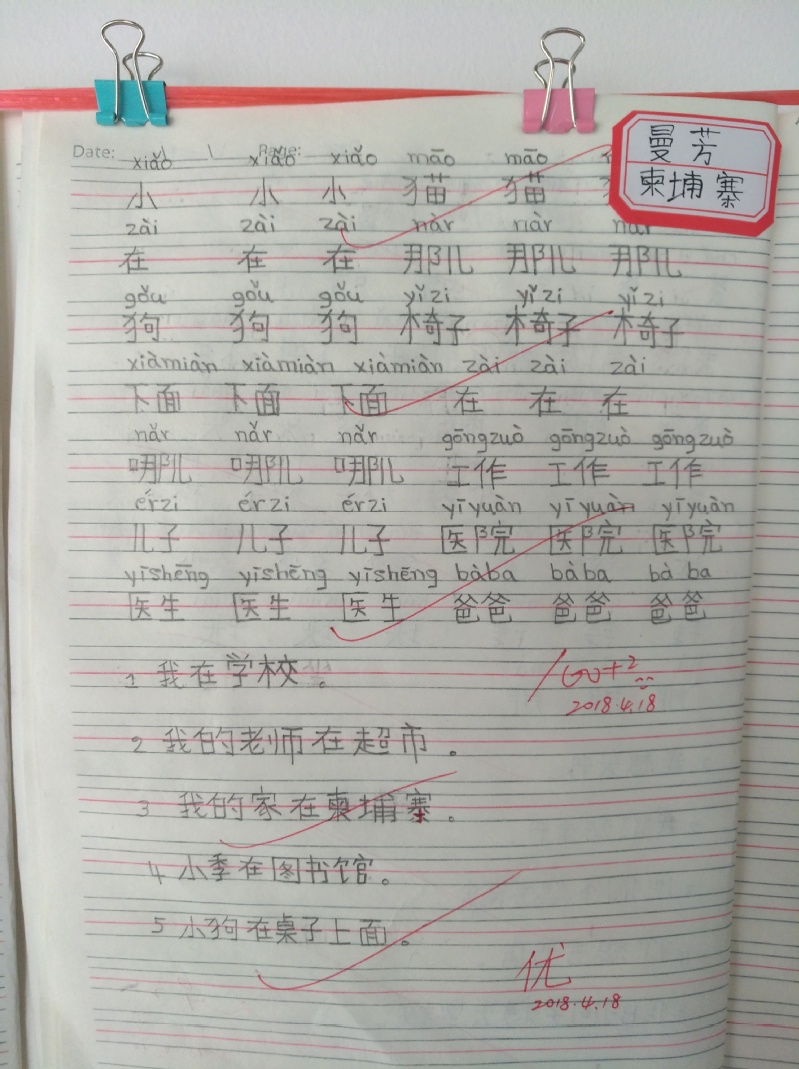 Date:
xiǎo xiǎo xiǎo māo māo
小 小 小 猫 猫
曼芳
柬埔寨
zài zài zài nàr nàr nàr
在 在 在 那儿 那儿 那儿
gǒu gǒu gǒu yǐzi yǐzi yǐzi
狗 狗 狗 椅子 椅子 椅子
xiàmiàn xiàmiàn xiàmiàn zài zài zài
下面 下面 下面 在 在 在
nǎr nǎr nǎr gōngzuò gōngzuò gōngzuò
哪儿 哪儿 哪儿 工作 工作 工作
érzi érzi érzi yīyuàn yīyuàn yīyuàn
儿子 儿子 儿子 医院 医院 医院
yīshēng yīshēng yīshēng bàba bàba bàba
医生 医生 医生 爸爸 爸爸 爸爸
1 我在学校。
100+2
2018.4.18
2 我的老师在超市。
3 我的家在柬埔寨。
4 小季在图书馆。
5 小狗在桌子上面。
优
2018.4.18